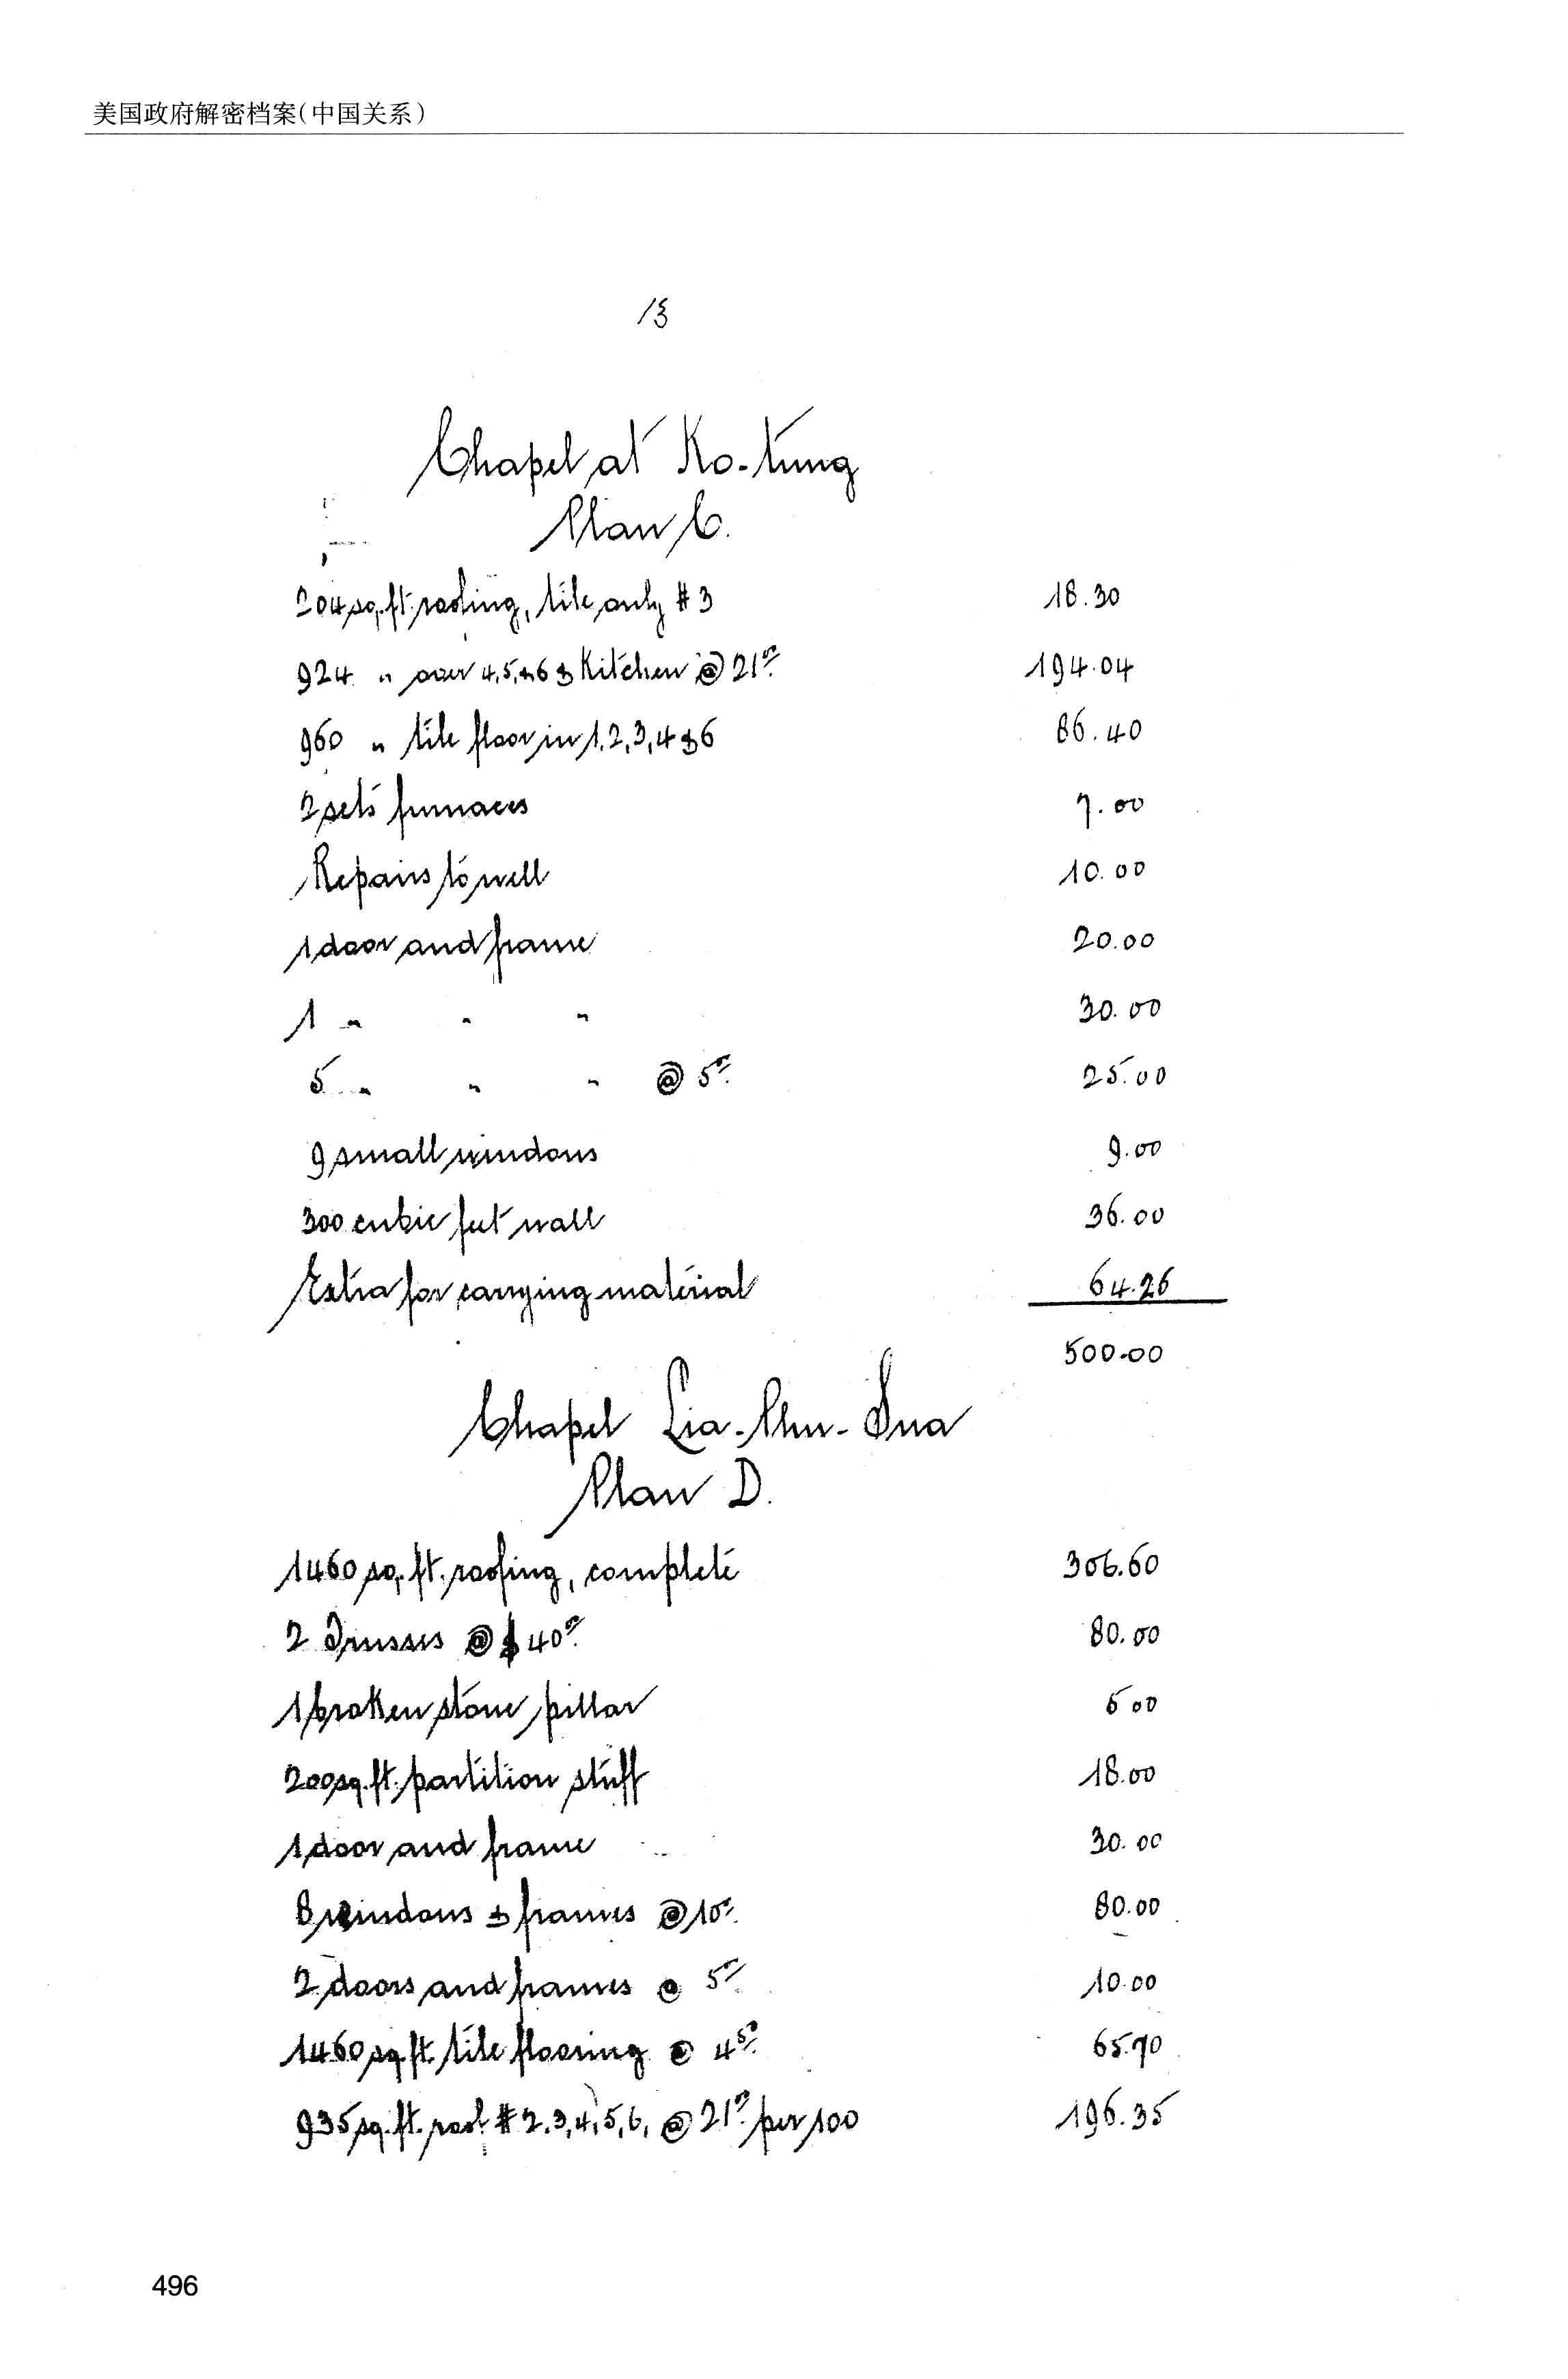 美国政府解密档案(中国关系)
13
Chapel at Ko-tung
Plan C.
204 sq. ft. roofing, tile only #3 18.30
924 " over 4,5,&6 & Kitchen @ 21.00 194.04
960 " tile floor in 1,2,3,4 & 6 86.40
2 sets furnaces 7.00
Repairs to well 10.00
1 door and frame 20.00
1 " " " 30.00
5 " " " @ 5.00 25.00
9 small windows 9.00
300 cubic feet wall 36.00
Extra for carrying material 64.26
500.00
Chapel Lia-Phu-Sua
Plan D.
1460 sq. ft. roofing, complete 306.60
2 Trusses @ $40.00 80.00
1 broken stone pillar 6 00
200 sq. ft. partition stuff 18.00
1 door and frame 30.00
8 windows & frames @ 10.00 80.00
2 doors and frames @ 5.00 10.00
1460 sq ft. tile flooring @ 4.50 65.70
935 sq. ft. roof #2,3,4,5,6, @ 21.00 per 100 196.35
496